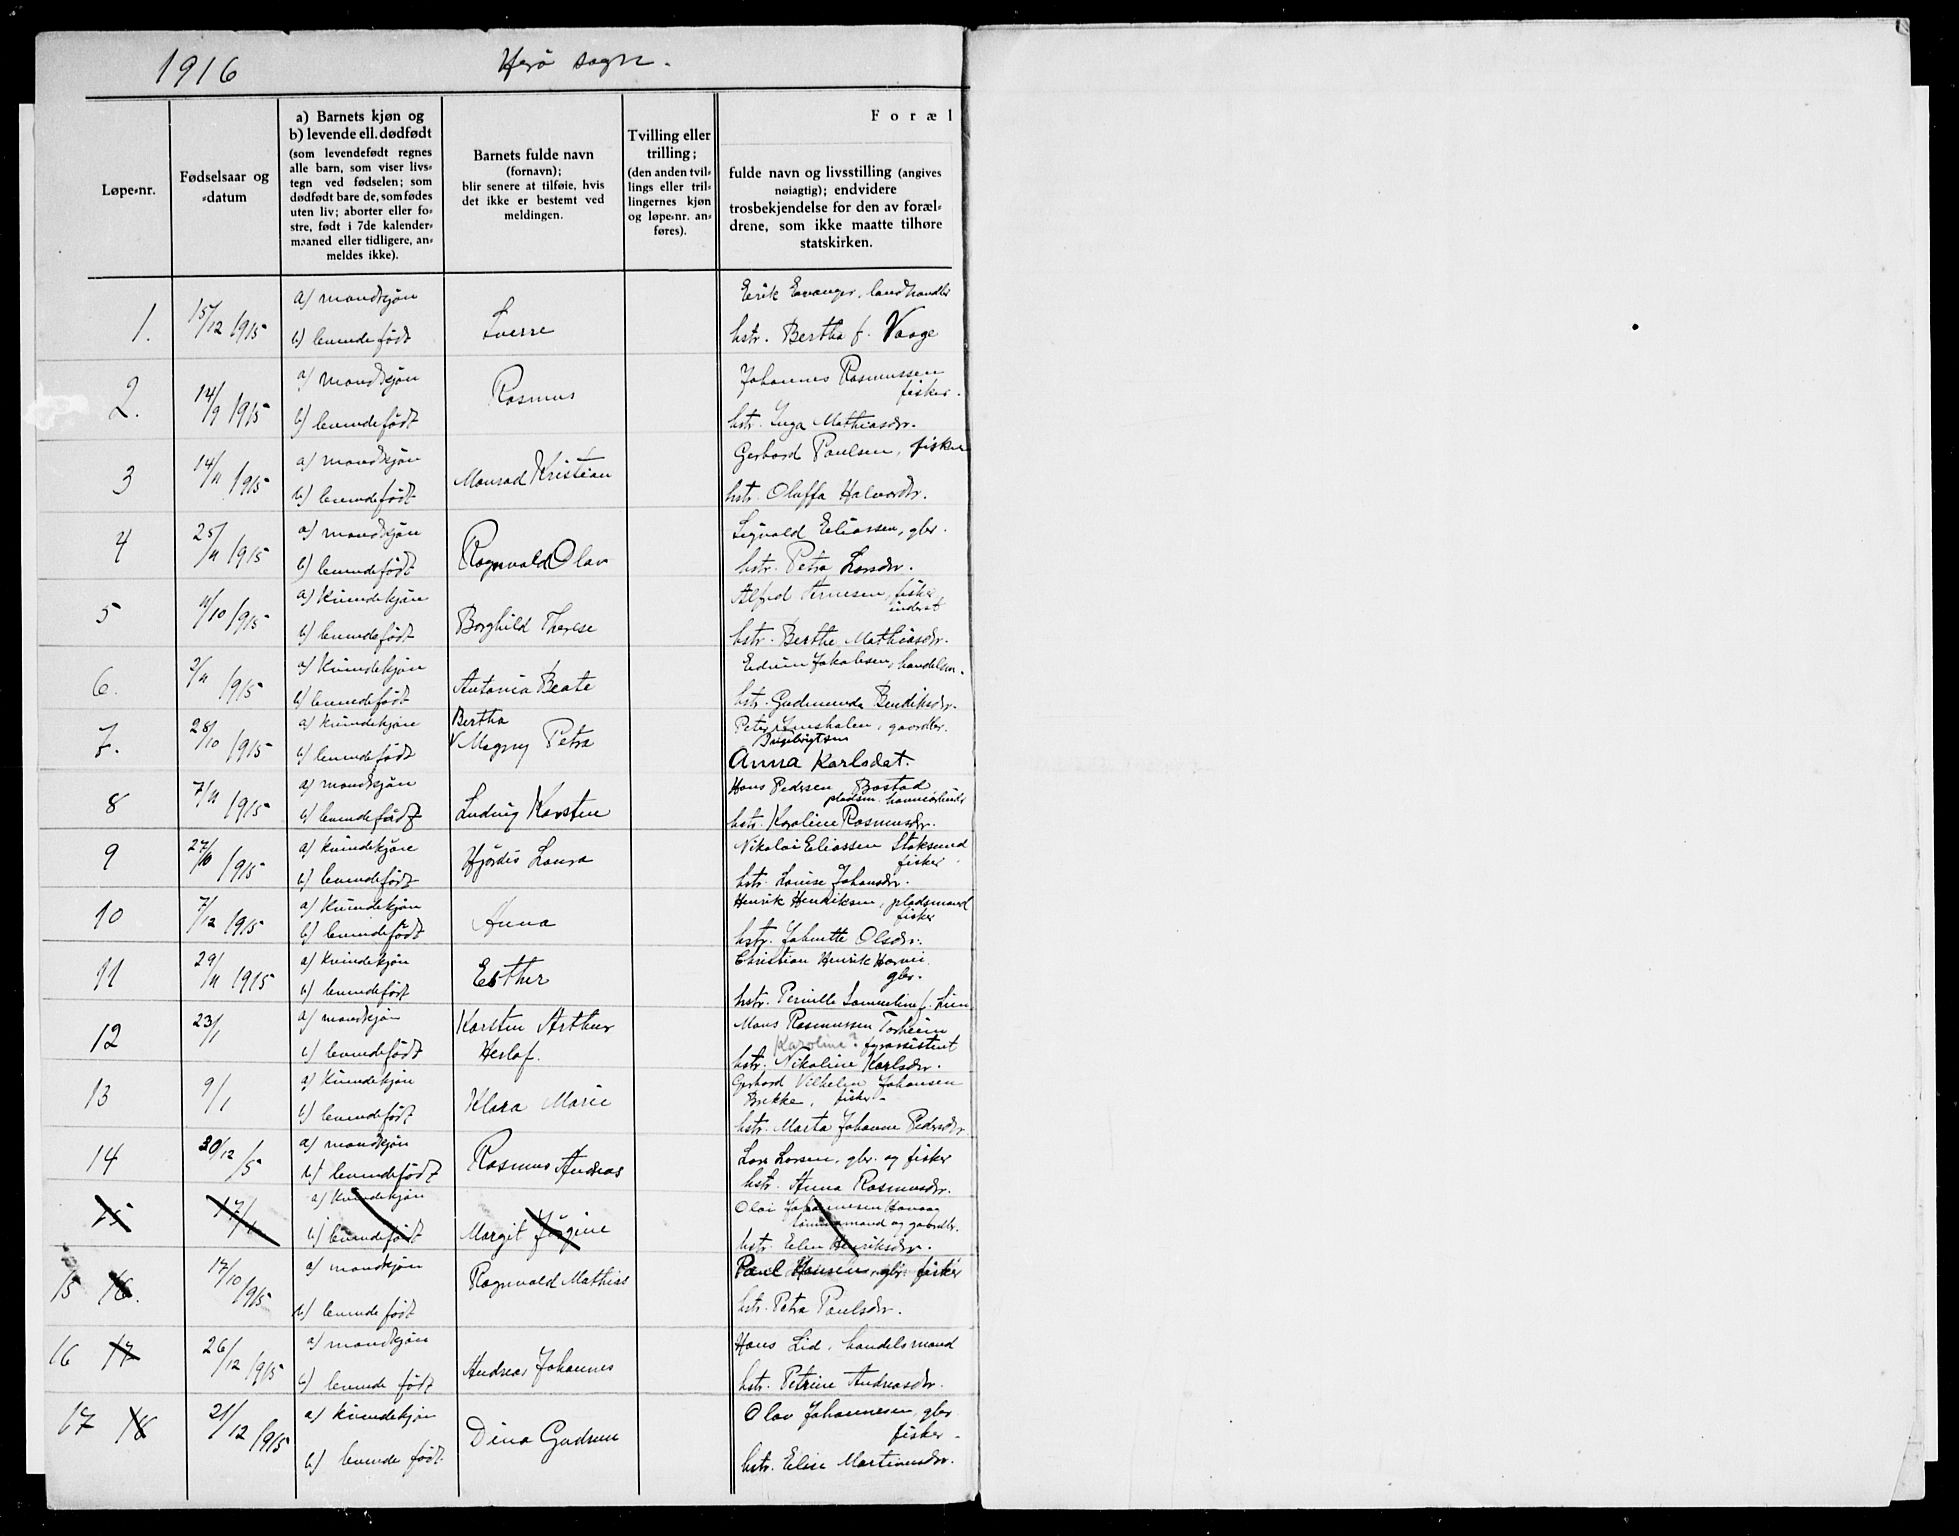 1916
Herö sogn.
Løpe-nr.
Fødselsaar og
-datum
a) Barnets kjøn og
b) levende ell. dødfødt
(som levendefødt regnes
alle barn, som viser livs-
tegn ved fødselen; som
dødfødt bare de, som fødes
uten liv; aborter eller fo-
stre, født i 7de kalender-
maaned eller tidligere, an-
meldes ikke).
Barnets fulde navn
(fornavn);
blir senere at tilføie, hvis
det ikke er bestemt ved
meldingen.
Tvilling eller
trilling;
(den anden tvil-
lings eller tril-
lingernes kjøn
og løpe-nr. an-
føres).
Foræl
fulde navn og livsstilling (angives
nøiagtig); endvidere
trosbekjendelse for den av foræl-
drene, som ikke maatte tilhøre
statskirken.
1. 15/12 1915 a) mandkjøn Sverre Erik landhandler
b) levendefødt hstr. Bertha f. Vaage
2. 14/9 1915 a) mandkjøn Rasmus Johannes Rasmussen
fisker.
b) levendefødt hstr. Inga Mathiasdr.
3 14/11 1915 a) mandkjøn Monrad Kristian Gerhard Paulsen, fisker
b) levendefødt hstr. Oluffa Halvordr.
4 25/11 1915 a) mandkjøn Ragnvald Olav Sigvald Eliassen, gbr.
b) levendefødt hstr. Petra Larsdr.
5 11/10 1915 a) kvindekjøn Borghild Therese Alfred fisker,
inderst
b) levendefødt hstr. Berthe Mathiasdr.
6. 2/11 1915 a) kvindekjøn Antonia Beate Edvin Jakobsen, handelsm.
b) levendefødt hstr. Gudmunda Bendiksdr.
7. 28/10 1915 a) kvindekjøn Bertha
V Magny Petra Peter gaardbr.
b) levendefødt Anna Karlsdat.
8 7/11 1915 a) mandkjøn Ludvig Karsten Hans Pedersen Bostad
pladsm.
b) levendefødt hstr. Karoline Rasmusdr.
9 27/10 1915 a) kvindekjøn Hjördis Laura Nikolai Eliassen Stoksund
fisker.
b) levendefødt hstr. Lovise Johansdr.
10 7/12 1915 a) kvindekjøn Anna Henrik Henriksen, pladsmand
fisker
b) levendefødt hstr. Johnette Olsdr.
11 29/11 1915 a) kvindekjøn Esther Christian Henrik
gbr.
b) levendefødt hstr. Pernille f. Lien
12 23/1 a) mandkjøn Karsten Arthur
Herlof. Mons Rasmussen Torheim
Karoline? fyrassistent
b) levendefødt hstr. Nikoline Karlsdr.
13 9/1 a) kvindekjøn Klara Marie Gerhard Vilhelm Johansen
Brekke, fisker
b) levendefødt hstr. Marta Johanne Pedersdr.
14 30/12 15 a) mandkjøn Rasmus Andreas Lars Larsen, gbr. og fisker
b) levendefødt hstr. Anna Rasmusdr.
15 17/1 a) kvindekjøn Margit Jørgine Olai Johannesen
og gaardbr.
b) levendefødt hstr. Elen Henriksdr.
15 16. 17/10 1915 a) mandkjøn Ragnvald Mathias Paul Hansen, gbr. fisker
b) levendefødt hstr. Petra Paulsdr.
16 17 26/12 1915 a) mandkjøn Andreas Johannes Hans Lid, handelsmand
b) levende født hstr. Petrine Andreasdr.
17 18 21/12 1915 a) kvindekjøn Dina Gudrun Olav Johannesen, gbr.
fisker
b) levende født hstr. Elise Martinusdr.